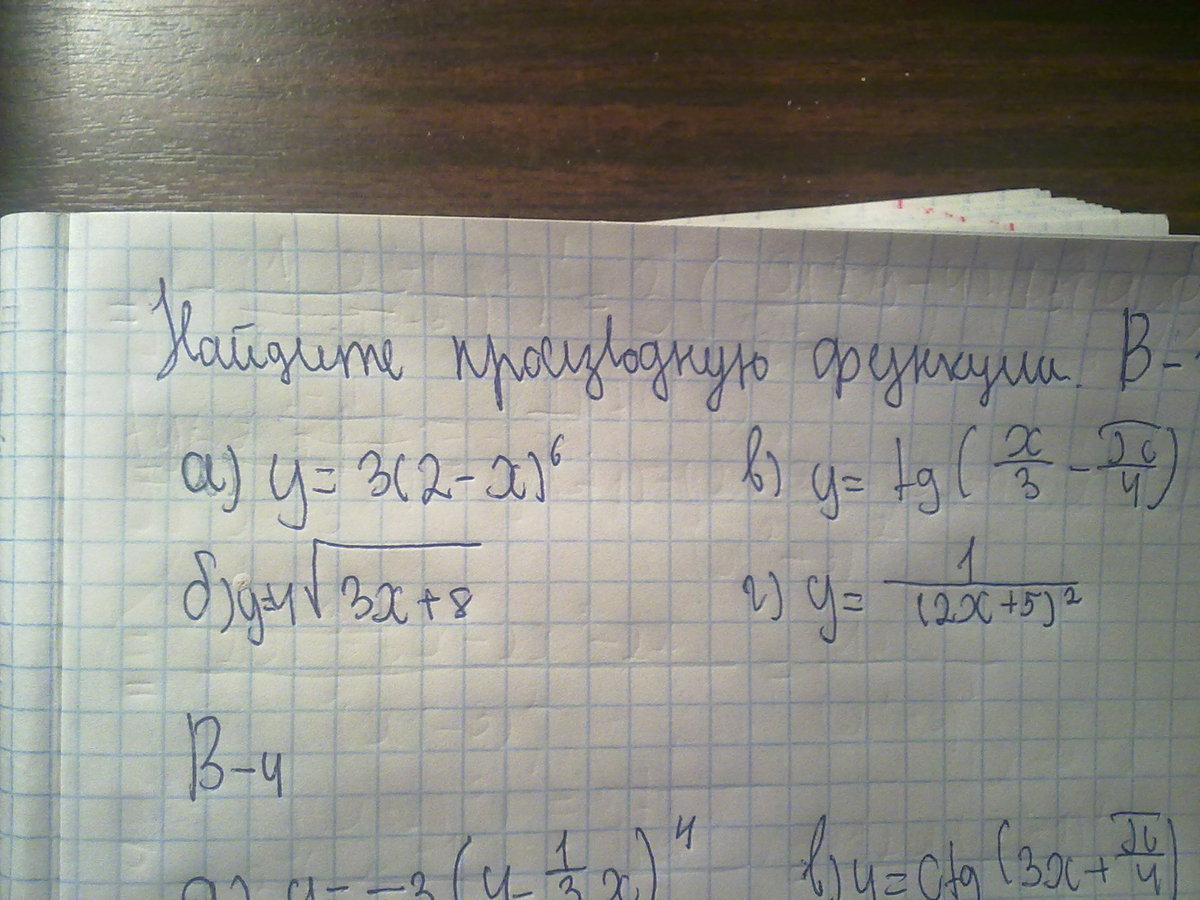 Найдите производную функции. В-
а) y = 3(2-x)⁶ в) y = tg(x/3 - π/4)
б) y=4√3x+8 г) y = 1/(2x+5)²
В-4
а) y = -3(4-1/3x)⁴ в) y = ctg(3x+π/4)